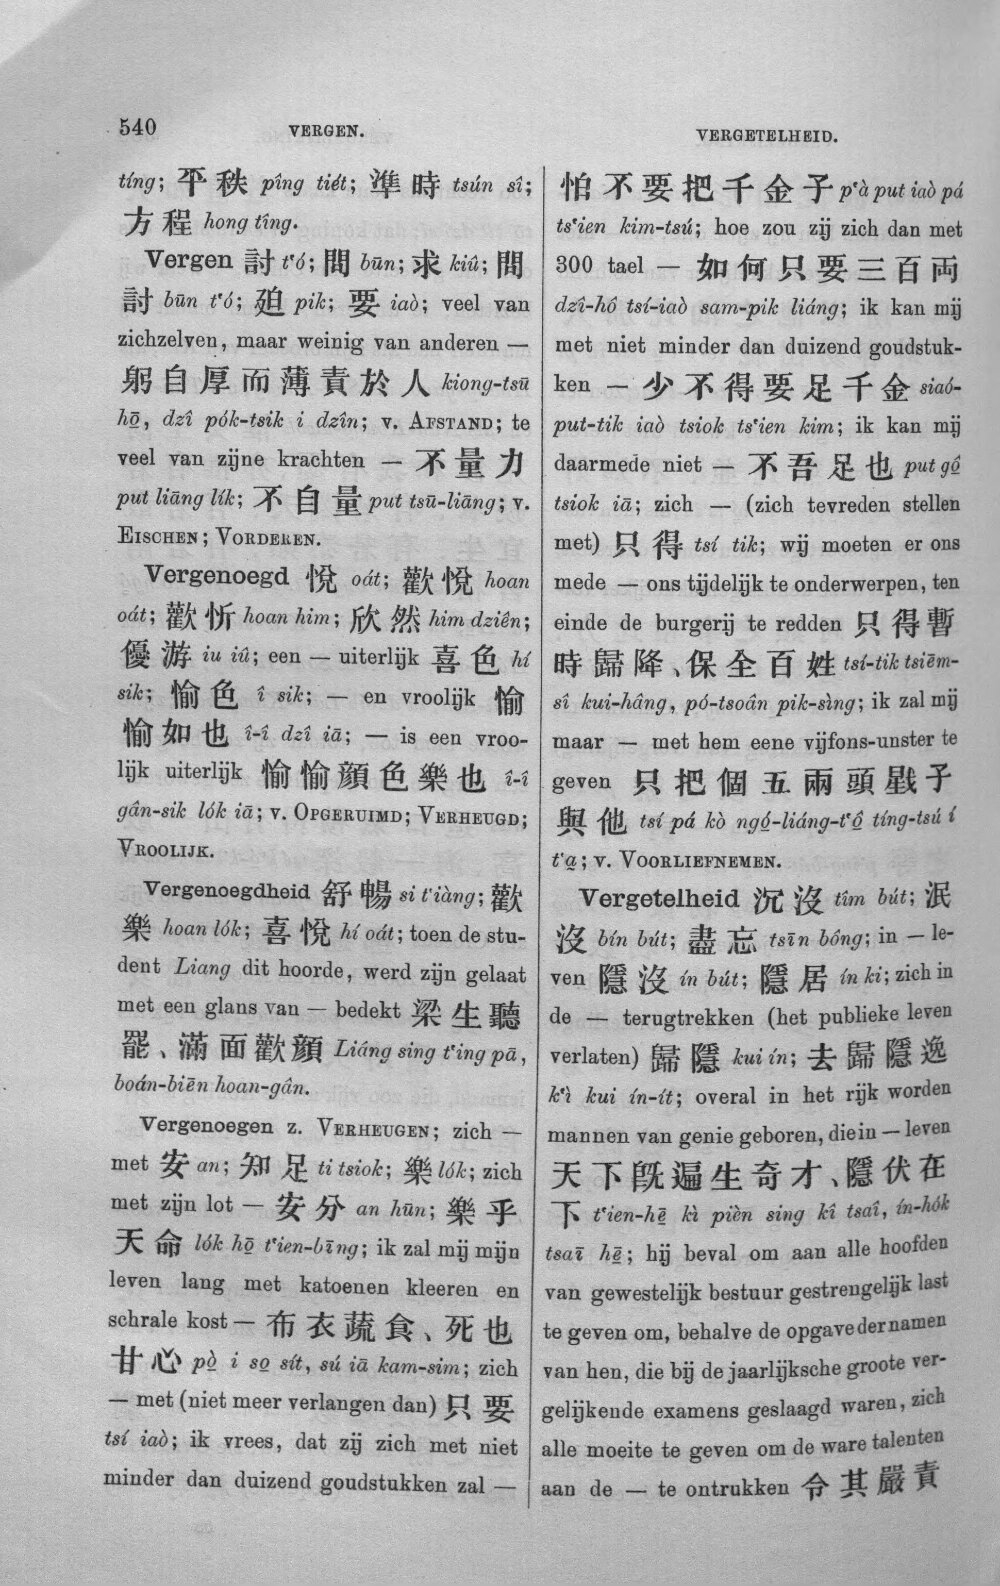 540
VERGEN.
VERGETELHEID.
tíng; 平秩 pîng tiét; 準時 tsún sî;
方程 hong tîng.
Vergen 討 t‘ó; 問 būn; 求 kiû; 問
討 būn t‘ó; 廹 pik; 要 iaò; veel van
zichzelven, maar weinig van anderen —
躬自厚而薄責於人 kiong-tsū
hō̤, dzî pók-tsik i dzîn; v. AFSTAND; te
veel van zijne krachten — 不量力
put liāng lík; 不自量 put tsū-liāng; v.
EISCHEN; VORDEREN.
Vergenoegd 悅 oát; 歡悅 hoan
oát; 歡忻 hoan him; 欣然 him dziên;
優游 iu iû; een — uiterlijk 喜色 hí
sik; 愉色 î sik; — en vroolijk 愉
愉如也 î-î dzî iā; — is een vroo-
lijk uiterlijk 愉愉顔色樂也 î-î
gân-sik lók iā; v. OPGERUIMD; VERHEUGD;
VROOLIJK.
Vergenoegdheid 舒暢 si t‘iàng; 歡
樂 hoan lók; 喜悅 hí oát; toen de stu-
dent Liang dit hoorde, werd zijn gelaat
met een glans van — bedekt 梁生聽
罷、滿面歡顔 Liáng sing t‘ing pā,
boán-biēn hoan-gân.
Vergenoegen z. VERHEUGEN; zich —
met 安 an; 知足 ti tsiok; 樂 lók; zich
met zijn lot — 安分 an hūn; 樂乎
天命 lók hō̤ t‘ien-bīng; ik zal mij mijn
leven lang met katoenen kleeren en
schrale kost — 布衣蔬食、死也
甘心 pò̤ i so̤ sít, sú iā kam-sim; zich
— met (niet meer verlangen dan) 只要
tsí iaò; ik vrees, dat zij zich met niet
minder dan duizend goudstukken zal —
怕不要把千金子 p‘à put iaò pá
ts‘ien kim-tsú; hoe zou zij zich dan met
300 tael — 如何只要三百両
dzî-hô tsí-iaò sam-pik liáng; ik kan mij
met niet minder dan duizend goudstuk-
ken — 少不得要足千金 siaó-
put-tik iaò tsiok ts‘ien kim; ik kan mij
daarmede niet — 不吾足也 put gô̤
tsiok iā; zich — (zich tevreden stellen
met) 只得 tsí tik; wij moeten er ons
mede — ons tijdelijk te onderwerpen, ten
einde de burgerij te redden 只得暫
時歸降、保全百姓 tsí-tik tsiēm-
sî kui-hâng, pó-tsoân pik-sìng; ik zal mij
maar — met hem eene vijfons-unster te
geven 只把個五兩頭戥子
與他 tsí pá kò ngó̤-liáng-t‘ô̤ tíng-tsú í
t‘a̤; v. VOORLIEFNEMEN.
Vergetelheid 沉沒 tîm bút; 泯
沒 bín bút; 盡忘 tsīn bông; in — le-
ven 隱沒 ín bút; 隱居 ín ki; zich in
de — terugtrekken (het publieke leven
verlaten) 歸隱 kui ín; 去歸隱逸
k‘ì kui ín-ít; overal in het rijk worden
mannen van genie geboren, die in — leven
天下旣遍生奇才、隱伏在
下 t‘ien-hē̤ kì pièn sing kî tsaî, ín-hók
tsaī hē̤; hij beval om aan alle hoofden
van gewestelijk bestuur gestrengelijk last
te geven om, behalve de opgave der namen
van hen, die bij de jaarlijksche groote ver-
gelijkende examens geslaagd waren, zich
alle moeite te geven om de ware talenten
aan de — te ontrukken 令其嚴責